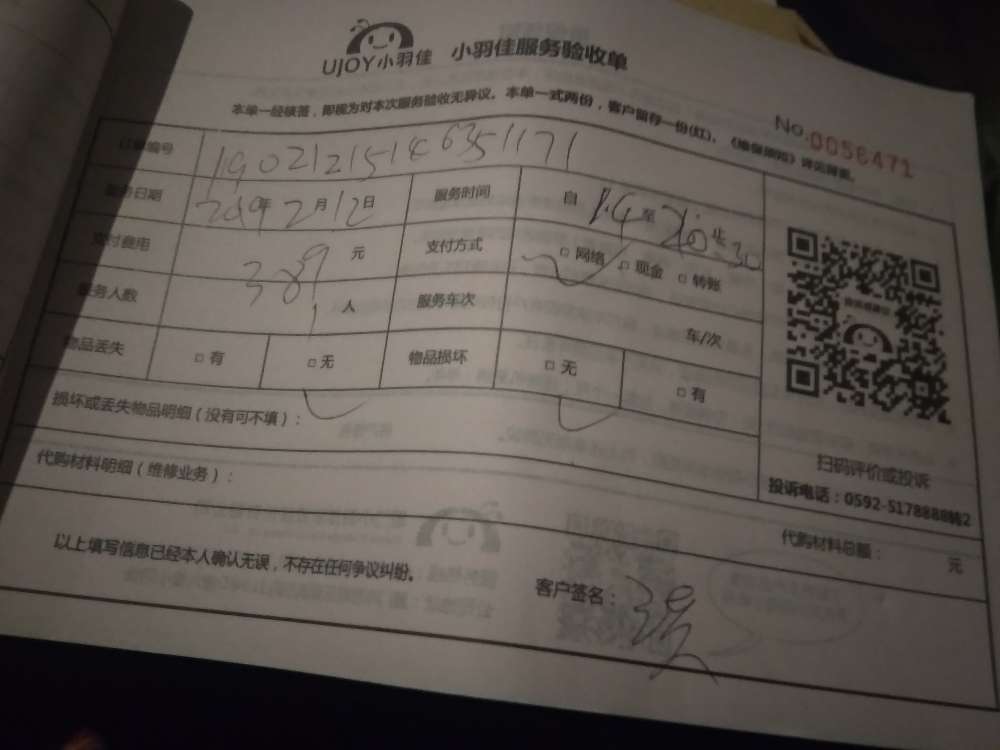 UJOY小羽佳 小羽佳服务验收单
本单一经核签，即视为对本次服务验收无异议。本单一式两份，客户留存一份(红)，《维保须知》详见背面。
No.0056471
订单编号
服务日期 2019年2月12日 服务时间 自 至
支付费用 389元 支付方式 □网络 □现金 □转账
服务人数 1人 服务车次 车/次
物品丢失 □有 □无 物品损坏 □无 □有
损坏或丢失物品明细（没有可不填）：
扫码评价或投诉
投诉电话：0592-5178888转2
代购材料明细（维修业务）：
代购材料总额： 元
以上填写信息已经本人确认无误，不存在任何争议纠纷。
客户签名：